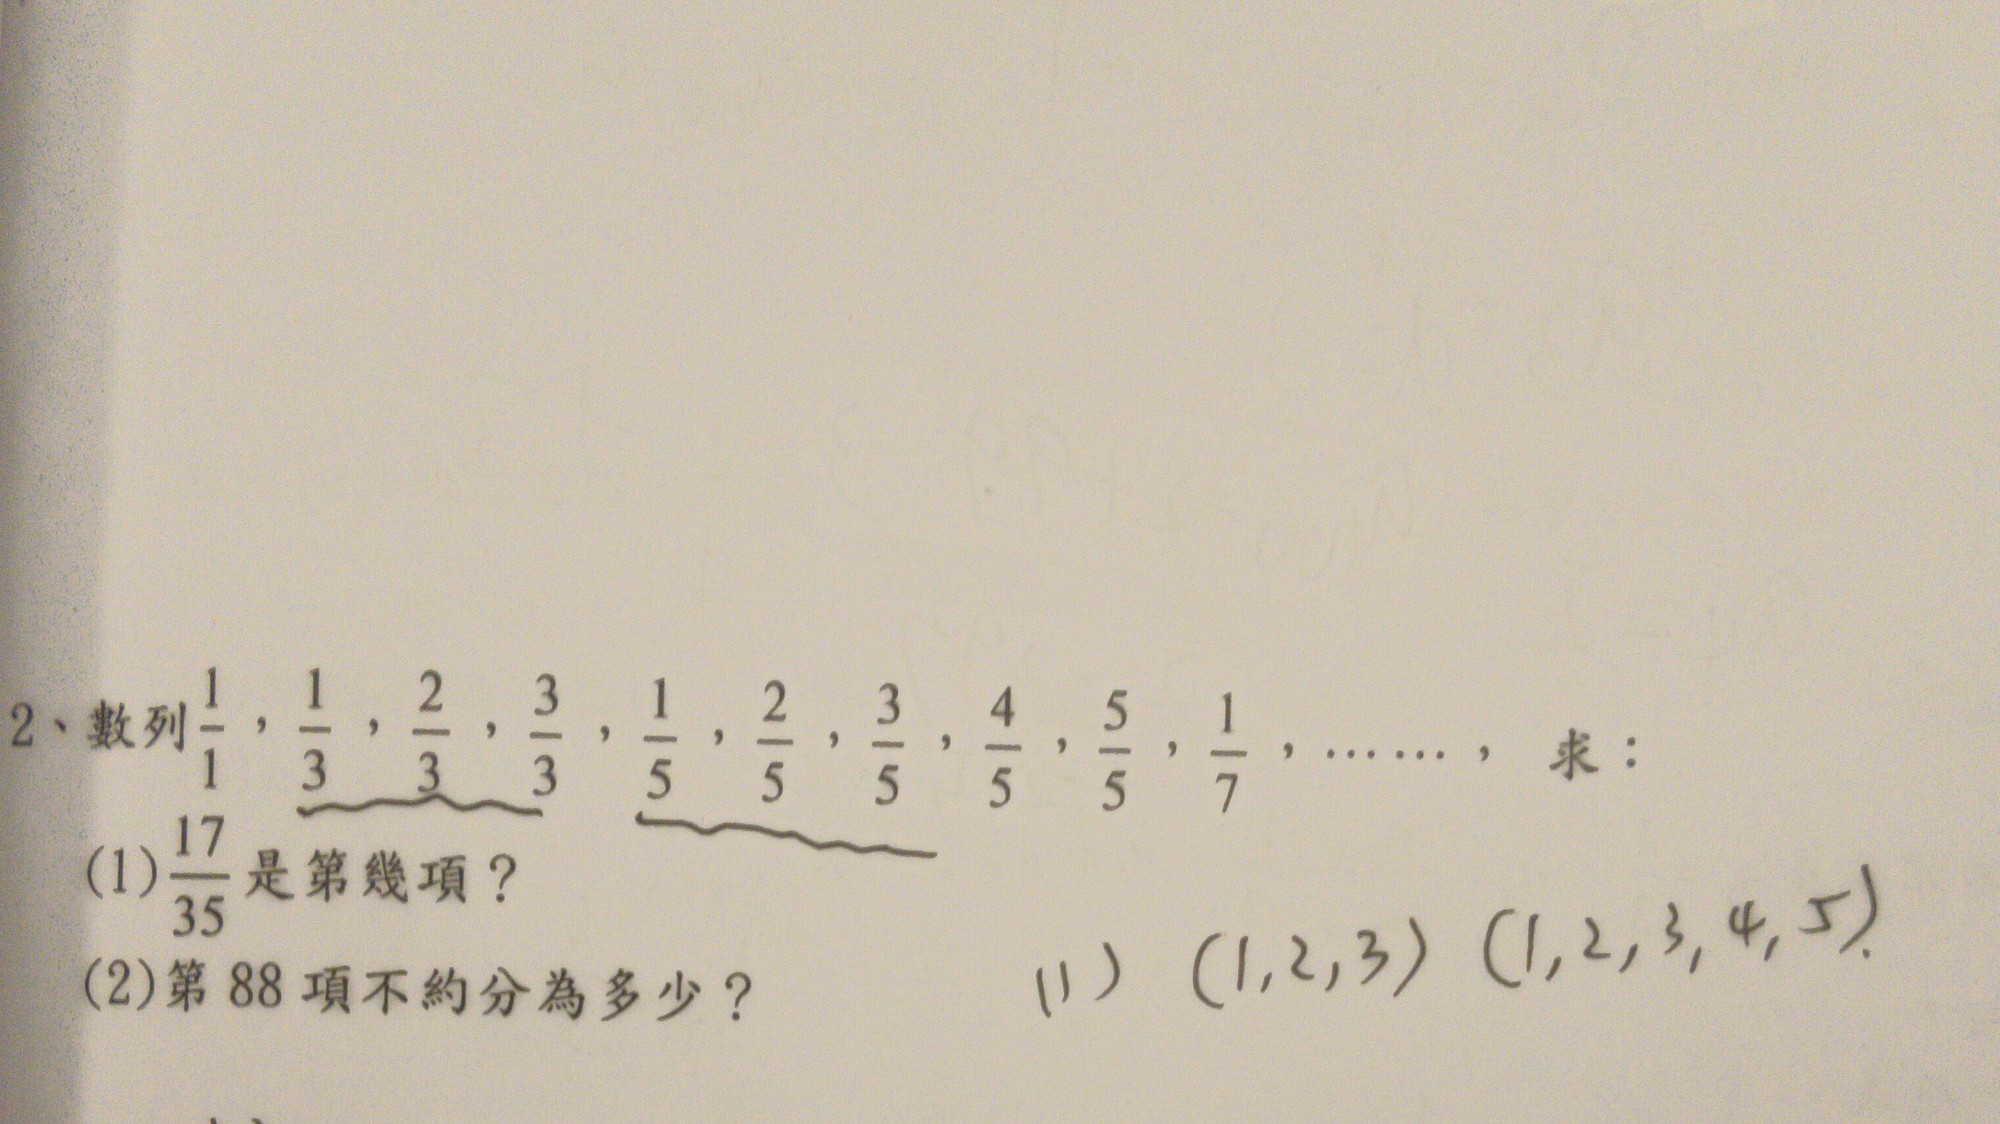 2、數列 1/1，1/3，2/3，3/3，1/5，2/5，3/5，4/5，5/5，1/7，……， 求：
(1) 17/35 是第幾項？
(2)第 88 項不約分為多少？
(1) (1,2,3) (1,2,3,4,5).